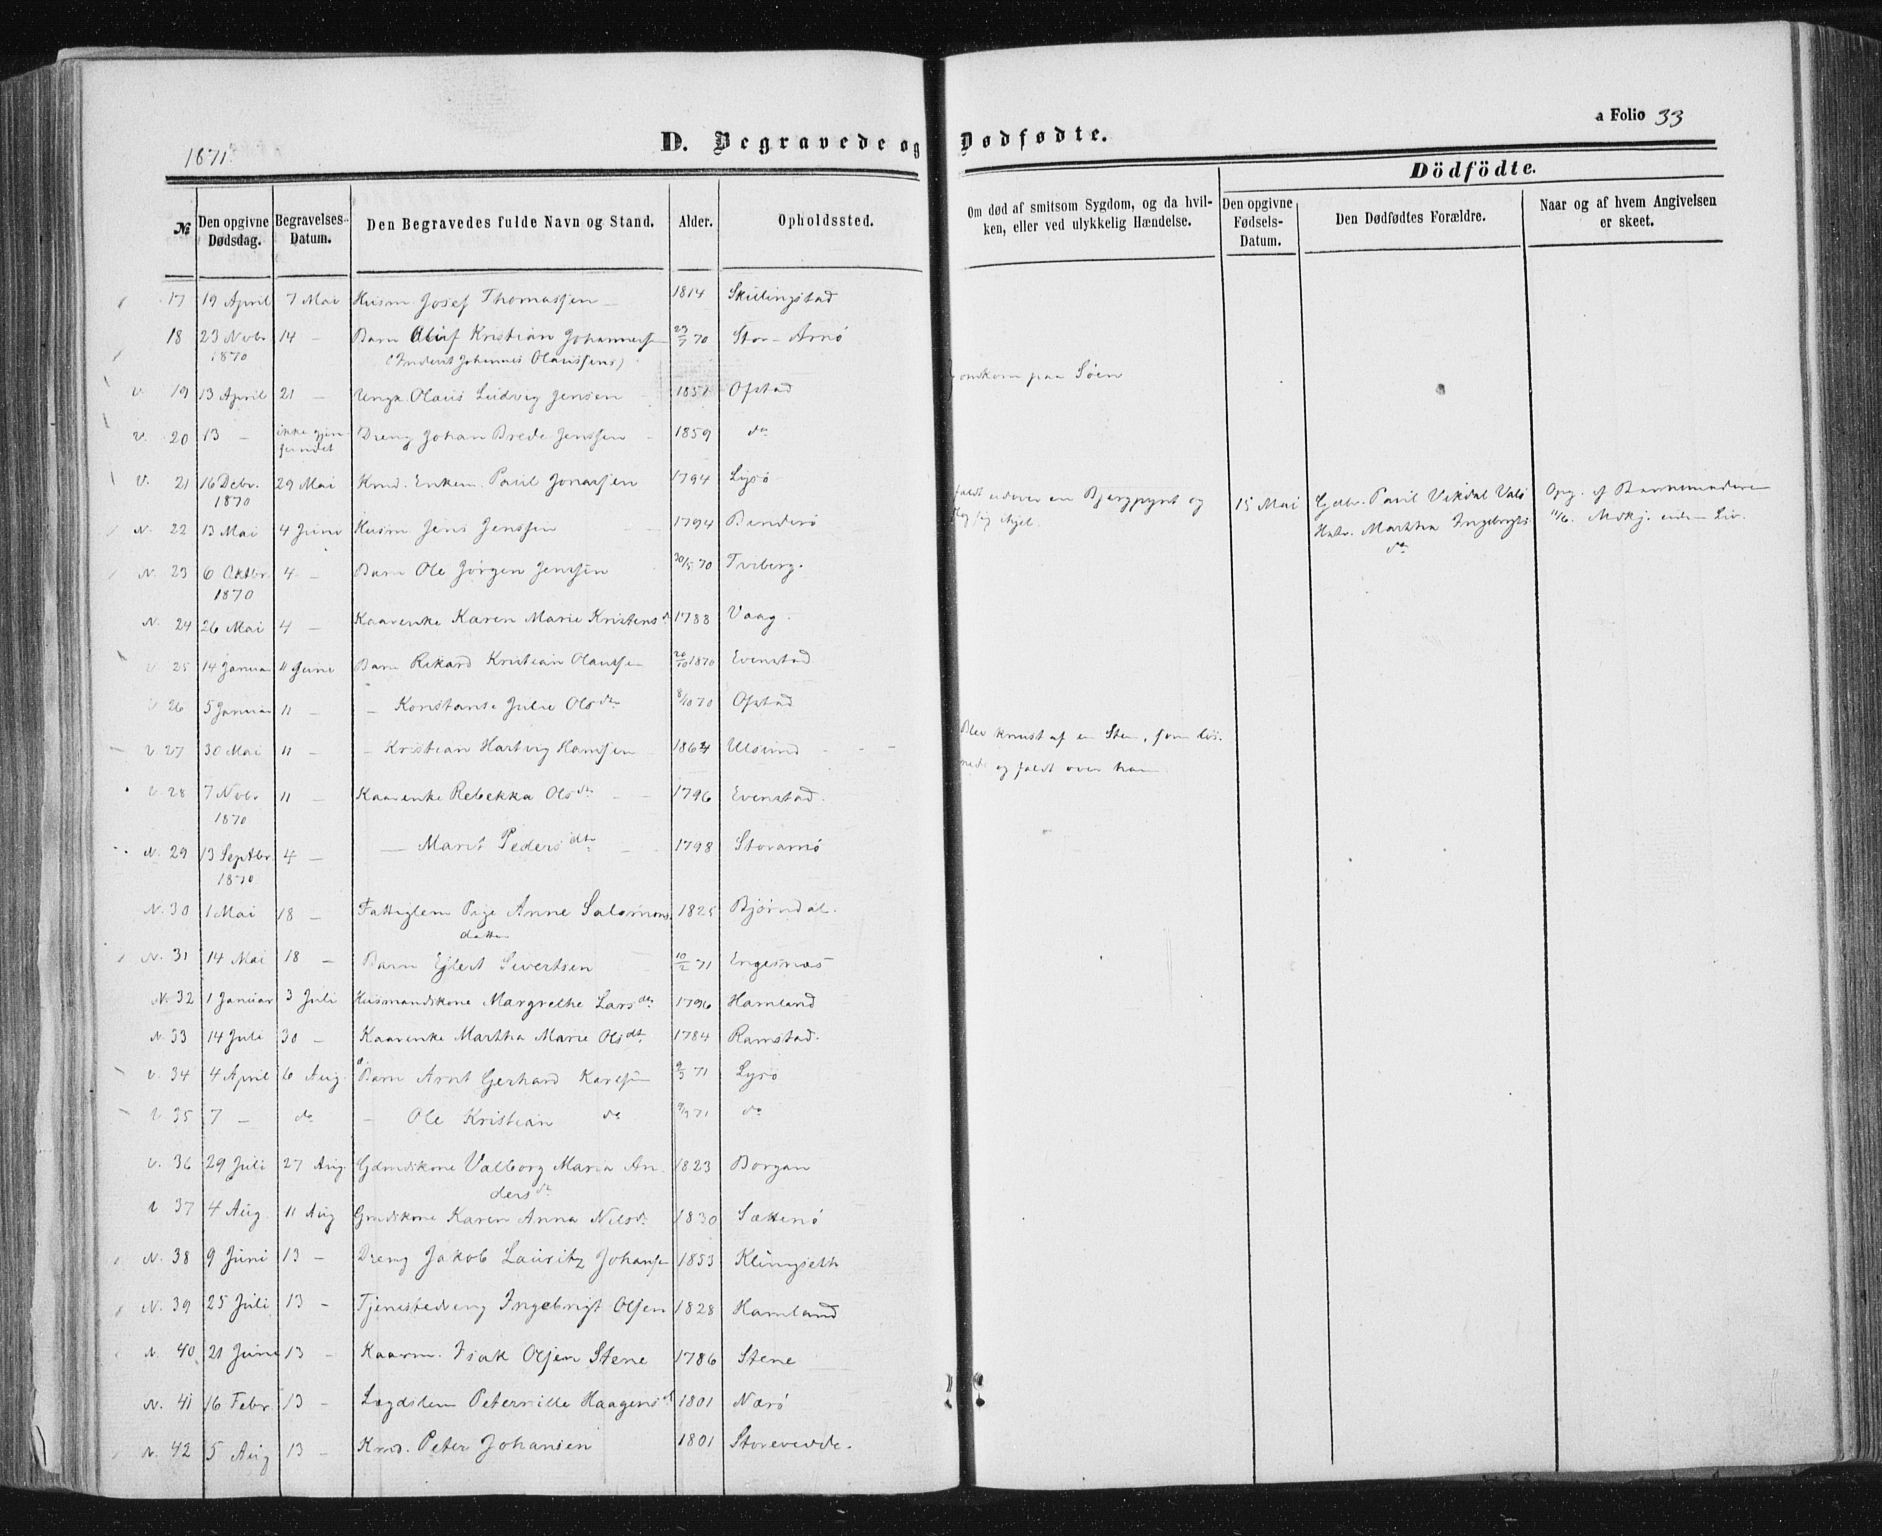 1871.
D. Begravede og Dødfødte.
a Folio 33
Dödfödte.
№
Den opgivne Dødsdag.
Begravelses-Datum.
Den Begravedes fulde Navn og Stand.
Alder.
Opholdssted.
Om død af smitsom Sygdom, og da hvilken, eller ved ulykkelig Hændelse.
Den opgivne Fødsels-Datum.
Den Dødfødtes Forældre.
Naar og af hvem Angivelsen er skeet.
17 19 April 7 Mai Husm Josef Thomassen 1814 Skillingstad
18 23 Novbr 1870 14 – Barn Oluf Kristian Johannes 23/7 70 Stor-Arnø
(Inderst Johannes Olaussens)
V. 19 13 April 21 – Ungk. Olaus Ludvig Jensen 1851 Ofstad omkom paa Söen
V. 20 13 – ikke gjenfundet Dreng Johan Brede Jenssen 1859 do
V. 21 16 Debr. 1870 29 Mai Kmd. Enkem. Paul Jonassen 1794 Lysø faldt udover en Bjergpynt og slog sig ihjel.
15 Mai Gdbr. Paul Vikdal Valø
Hstr. Martha Ingebrigts do
Opg. af Barnemoderen 11/6.
N. 22 13 Mai 4 Juni Husm Jens Jenssen 1794 Benderø
N. 23 6 Oktbr. 1870 4 – Barn Ole Jørgen Jenssen 30/5 70 Treberg.
N. 24 26 Mai 4 – Kaarenke Karen Marie Kristensd 1788 Vaag
V 25 14 Januar 11 Juni Barn Rikard Kristian Olaussen 20/10 1870 Evenstad
V 26 5 Januar 11 – – Konstanse Julie Olsdtr 8/10 70 Ofstad
V 27 30 Mai 11 – – Kristian Hartvig Hansen 1864 Ulsund – – Blev knust af en Sten, som løsnede og faldt over ham
V 28 7 Novbr 1870 11 – Kaarenke Rebekka Olsdtr 1796 Evenstad.
N. 29 13 Septbr. 1870 4 – — Marit Pedersdtr 1798 Storarnø
N. 30 1 Mai 18 – Fattiglem Pige Anne Salamonsdatter 1825 Bjørndal.
N. 31 14 Mai 18 – Barn Ejlert Sivertsen 10/2 71 Engesnæs
N. 32 1 Januar 3 Juli Husmandskone Margrethe Larsdtr 1796 Hamland
N. 33 14 Juli 30 – Kaarenke Martha Marie Olsdt. 1784 Ramstad.
V. 34 4 April 6 Aug. Barn Arnt Gerhard Karlsen 9/3 71 Lysø
V. 35 7 – do – Ole Kristian do 9/3 71 do
V. 36 29 Juli 27 Aug. Gdmdskone Valborg Maria Andersdr 1823 Borgan
V 37 4 Aug. 11 Aug Gmdskone Karen Anna Nilsd. 1830 Sættenø
N. 38 9 Juni 13 – Dreng Jakob Lauritz Johansen 1853 Klingseth
N. 39 25 Juli 13 – Tjenestedreng Ingebrigt Olsen 1828 Hamland
N. 40 21 Juni 13 – Kaarm. Isak Olsen Stene 1786 Stene
N. 41 16 Febr 13 – Lægdslem Peternille Haagensd 1801 Nærø
N. 42 5 Aug 13 – Kmd. Peter Johansen 1801 Storevedde.